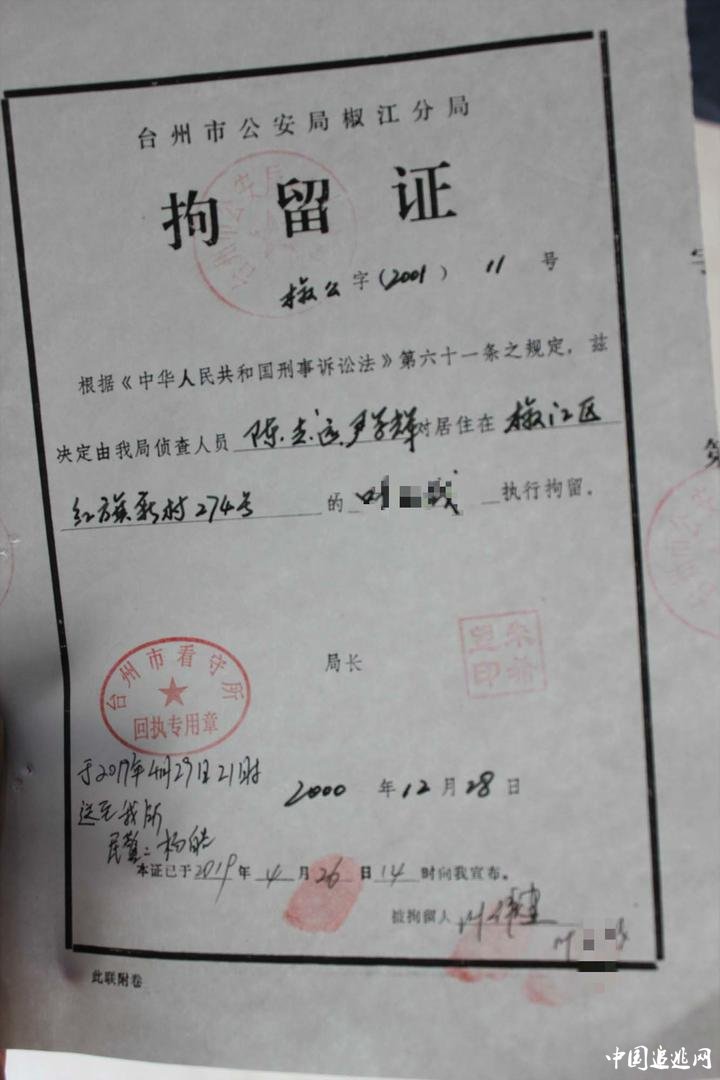 台州市公安局椒江分局
拘留证
椒公字(2001)11号
根据《中华人民共和国刑事诉讼法》第六十一条之规定，兹
决定由我局侦查人员 陈志远 尹学辉 对居住在 椒江区
红旗新村274号 的 叶 執行拘留。
台州市看守所
回执专用章
局长
于2019年4月29日21时
送至我所
民警：杨
2000年12月28日
本证已于2019年4月26日14时向我宣布。
被拘留人 叶
叶
此联附卷
中国追逃网